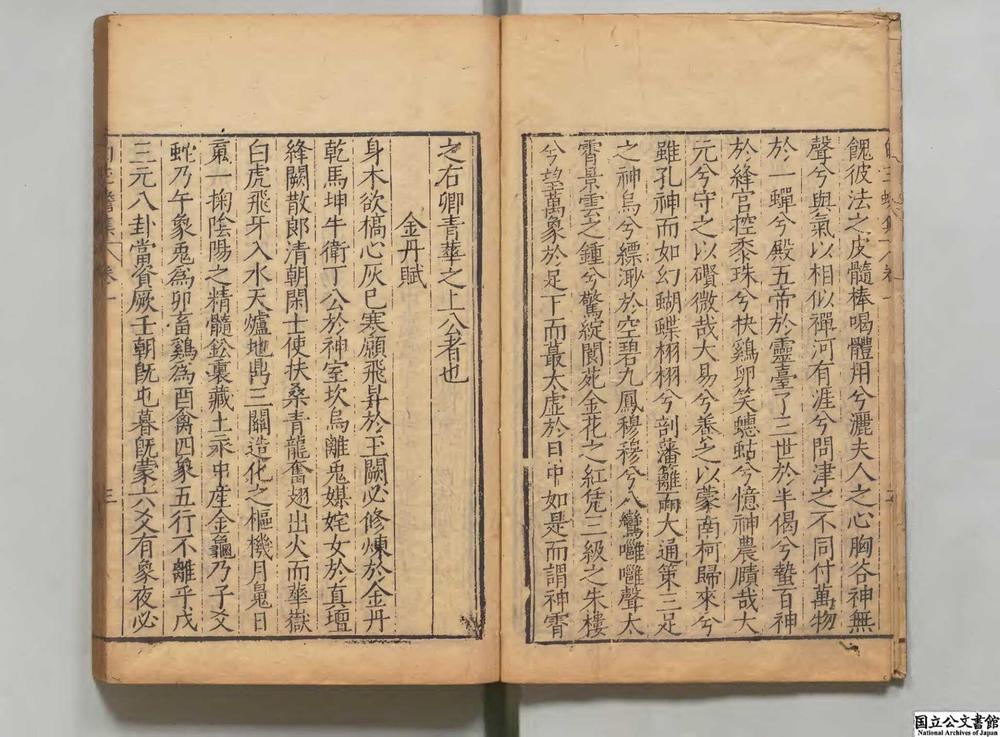 餽彼法之皮髓棒喝體用兮灑夫人之心胸谷神無
聲兮與氣以相似禪河有涯兮問津之不同付萬物
於一蟬兮殿五帝於靈臺了三世於半偈兮蟄百神
於絳宮控黍珠兮抉鷄卵笑蟪蛄兮憶神農賾哉大
元兮守之以礩微哉大易兮養之以蒙南柯歸來兮
雖孔神而如幻蝴蝶栩栩兮剖藩籬而大通策三足
之神烏兮縹渺於空碧九鳳穆穆兮八鸞噰噰聲太
霄景雲之鍾兮驚綻閬苑金花之紅凭三級之朱樓
兮望萬象於足下而蕞太虛於目中如是而謂神霄
之右卿青華之上公者也
金丹賦
身木欲槁心灰已寒願飛昇於玉闕必修煉於金丹
乾馬坤牛衛丁公於神室坎烏離兎媒姹女於真壇
絳闕散郎清朝閑士使扶桑青龍奮翅出火而華嶽
白虎飛牙入水天爐地鼎三關造化之樞機月鬼日
䰟一掬陰陽之精髓鈆裏藏土汞中産金龜乃子爻
蛇乃午象兎為卯畜鷄為酉禽四象五行不離乎戊
三元八卦當資厥壬朝既屯暮既蒙六爻有象夜必
卷一
三
国立公文書館
National Archives of Japan